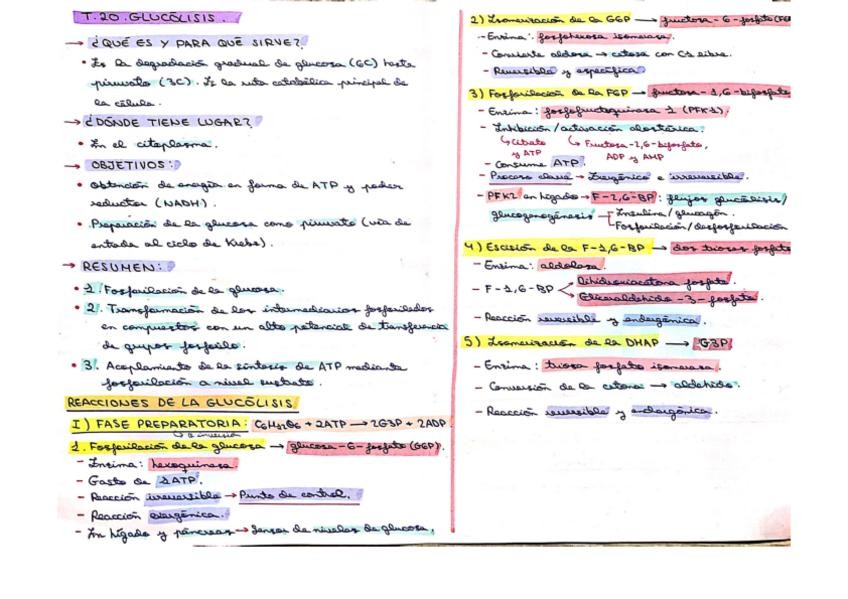 T.20. GLUCÓLISIS.
→ ¿QUÉ ES Y PARA QUÉ SIRVE?
• Es la degradación gradual de glucosa (6C) hasta
piruvato (3C). Es la ruta catabólica principal de
la célula.
→ ¿DÓNDE TIENE LUGAR?
• En el citoplasma.
→ OBJETIVOS:
• Obtención de energía en forma de ATP y poder
reductor (NADH).
• Preparación de la glucosa como piruvato (vía de
entrada al ciclo de Krebs).
→ RESUMEN:
• 1. Fosforilación de la glucosa.
• 2. Transformación de los intermediarios fosforilados
en compuestos con un alto potencial de transferencia
de grupos fosforilo.
• 3. Acoplamiento de la síntesis de ATP mediante
fosforilación a nivel sustrato.
REACCIONES DE LA GLUCÓLISIS
I) FASE PREPARATORIA: C6H12O6 + 2ATP → 2G3P + 2ADP
inversión
1. Fosforilación de la glucosa → glucosa-6-fosfato (G6P).
- Enzima: hexoquinasa.
- Gasto de 1ATP.
- Reacción irreversible → Punto de control.
- Reacción exergónica.
- En hígado y páncreas → sensor de niveles de glucosa.
2) Isomerización de la G6P → fructosa-6-fosfato (F6
- Enzima: fosfohexosa isomerasa.
- Convierte aldosa → cetosa con C1 libre.
- Reversible y específica.
3) Fosforilación de la F6P → fructosa-1,6-bifosfato
- Enzima: fosfofructoquinasa 1 (PFK1).
- Inhibición/activación alostérica.
↳ Citrato y ATP
↳ Fructosa-2,6-bifosfato, ADP y AMP
- Consume ATP.
- Proceso clave → Exergónica e irreversible.
- PFK2 en hígado → F-2,6-BP: flujos glucólisis/
gluconeogénesis
- Insulina/glucagón.
- Fosforilación/desfosforilación
4) Escisión de la F-1,6-BP → dos triosas fosfato
- Enzima: aldolasa.
- F-1,6-BP
Dihidroxiacetona fosfato.
Gliceraldehído-3-fosfato.
- Reacción reversible y endergónica.
5) Isomerización de la DHAP → G3P
- Enzima: triosa fosfato isomerasa.
- Conversión de la cetona → aldehído.
- Reacción reversible y endergónica.